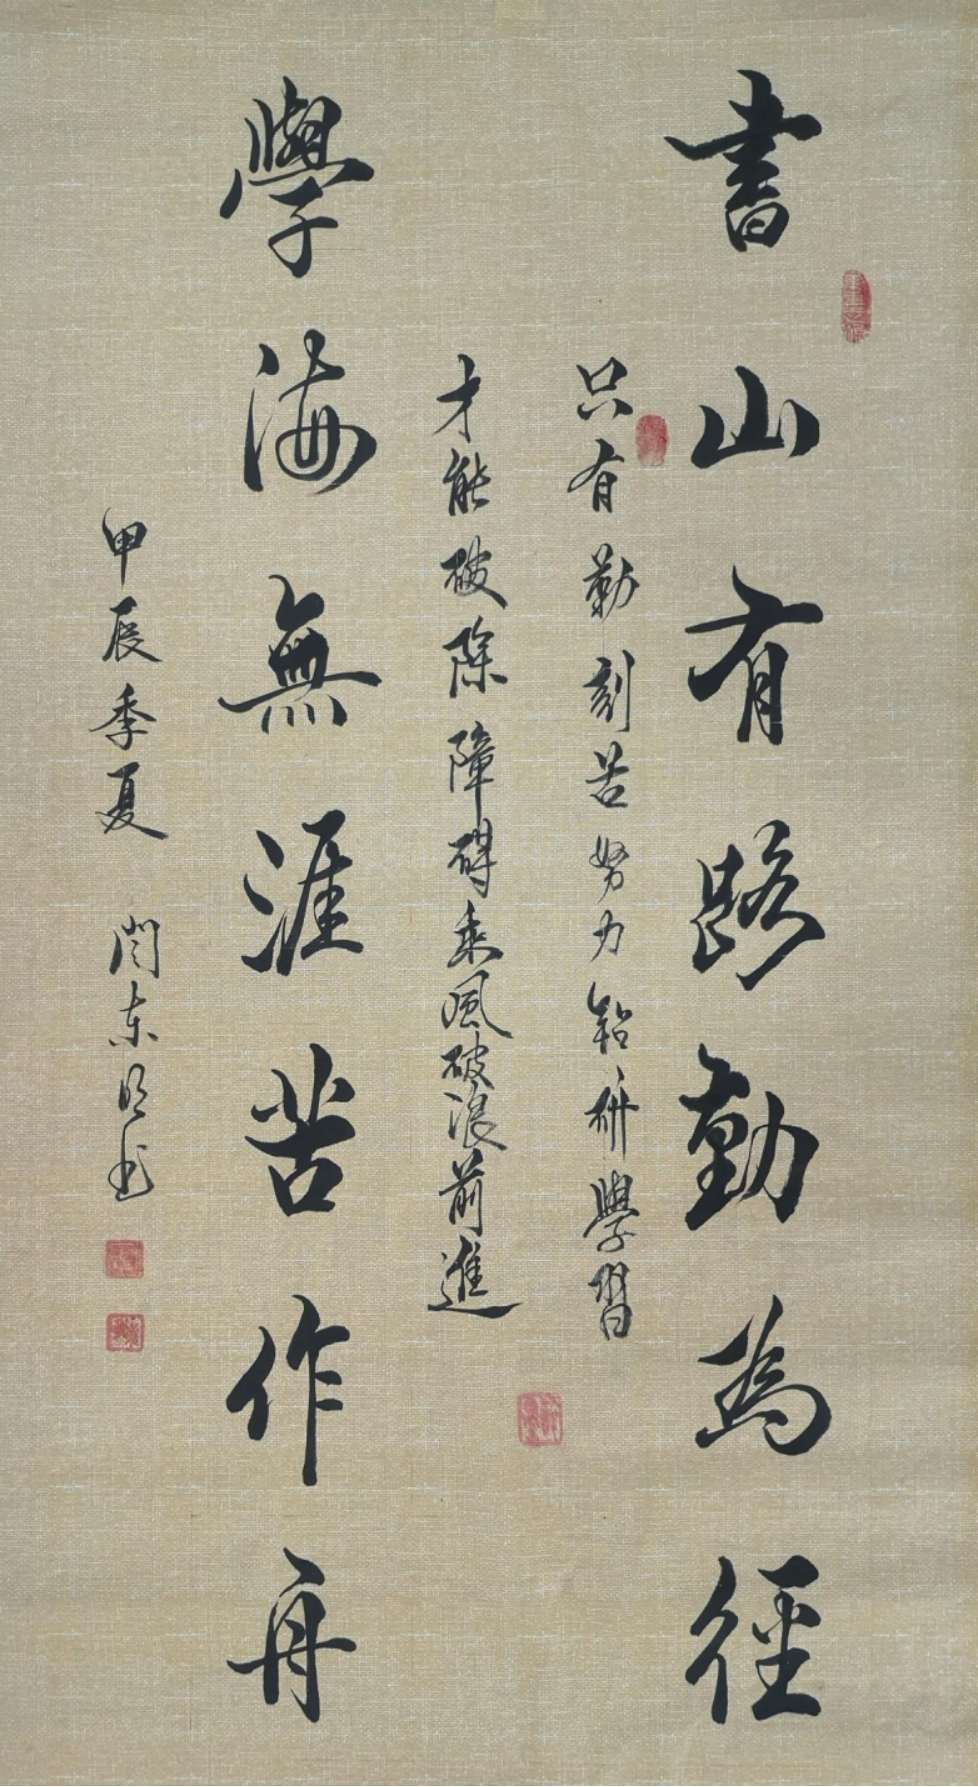 書山有路勤為徑
只有勤刻苦努力鉆研學習
才能破除障碍乘風破浪前進
學海無涯苦作舟
甲辰季夏 闫东明书